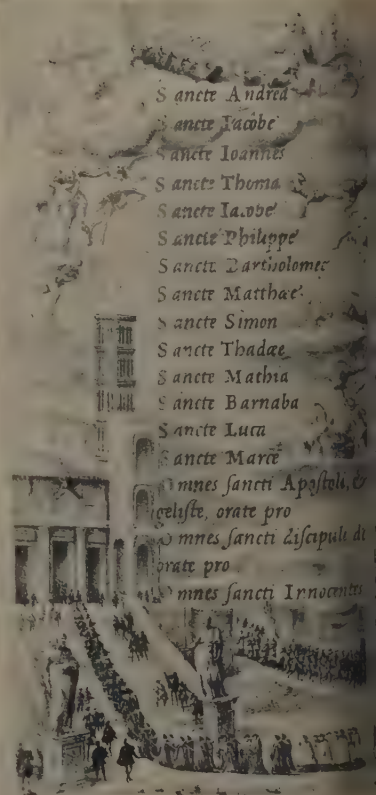 Sancte Andrea
Sancte Iacobe
Sancte Ioannes
Sancte Thoma
Sancte Iacobe
Sancte Philippe
Sancte Bartholomee
Sancte Matthæe
Sancte Simon
Sancte Thadæe
Sancte Mathia
Sancte Barnaba
Sancte Luca
Sancte Marce
Omnes ſancti Apoſtoli, &
geliſte, orate pro
Omnes ſancti diſcipuli di
orate pro
Omnes ſancti Innocentes